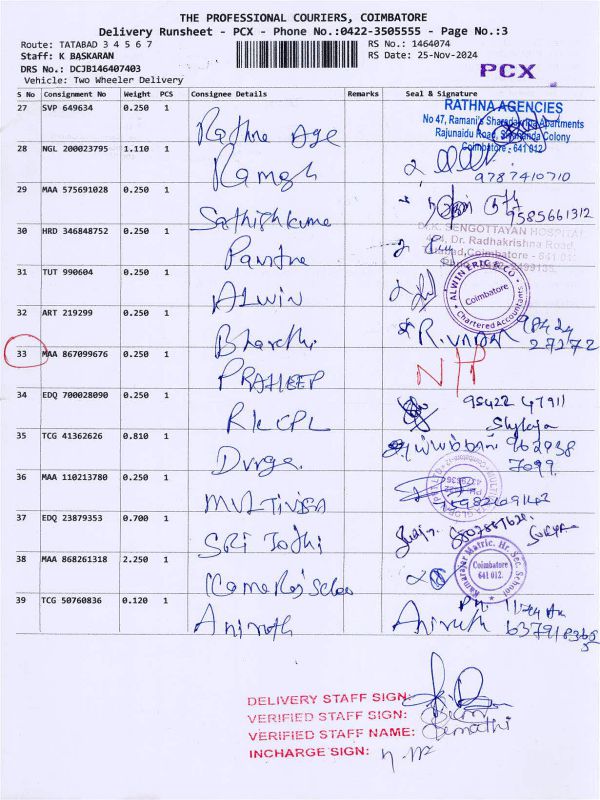 THE PROFESSIONAL COURIERS, COIMBATORE
Delivery Runsheet - PCX - Phone No.:0422-3505555 - Page No.:3
Route: TATABAD 3 4 5 6 7
Staff: K BASKARAN
DRS No.: DCJB146407403
Vehicle: Two Wheeler Delivery
RS No.: 1464074
RS Date: 25-Nov-2024
PCX
S No Consignment No Weight PCS Consignee Details Remarks Seal & Signature
27 SVP 649634 0.250 1 Rathna Age
RATHNA AGENCIES
No 47, Ramani's Sharadakripa Apartments
Rajunaidu Road, Sivananda Colony
Coimbatore - 641 012.
28 NGL 200023795 1.110 1 Ramesh 9787410710
29 MAA 575691028 0.250 1 Sathishkumar 9585661312
30 HRD 346848752 0.250 1 Pavithra
K. SENGOTTAYAN HOSPITAL
Dr. Radhakrishna Road,
Tatabad, Coimbatore - 641 012
31 TUT 990604 0.250 1 ALWIN
ALWIN ERIC & CO.
Coimbatore
Chartered Accountants
32 ART 219299 0.250 1 Bharathi 98424
27272
33 MAA 867099676 0.250 1 PRADEEP
34 EDQ 700028090 0.250 1 RKCPL 95422 47911
35 TCG 41362626 0.810 1 Durga.
7099
36 MAA 110213780 0.250 1 MULTIVISTA
37 EDQ 23879353 0.700 1 SRI Jothi
SURYA
38 MAA 868261318 2.250 1 Kamaraj School
Ramarajar Matric. Hr. Sec. School
Coimbatore
641 012.
39 TCG 50760836 0.120 1 Anirudh Anirudh
DELIVERY STAFF SIGN:
VERIFIED STAFF SIGN:
VERIFIED STAFF NAME: Gomathi
INCHARGE SIGN: